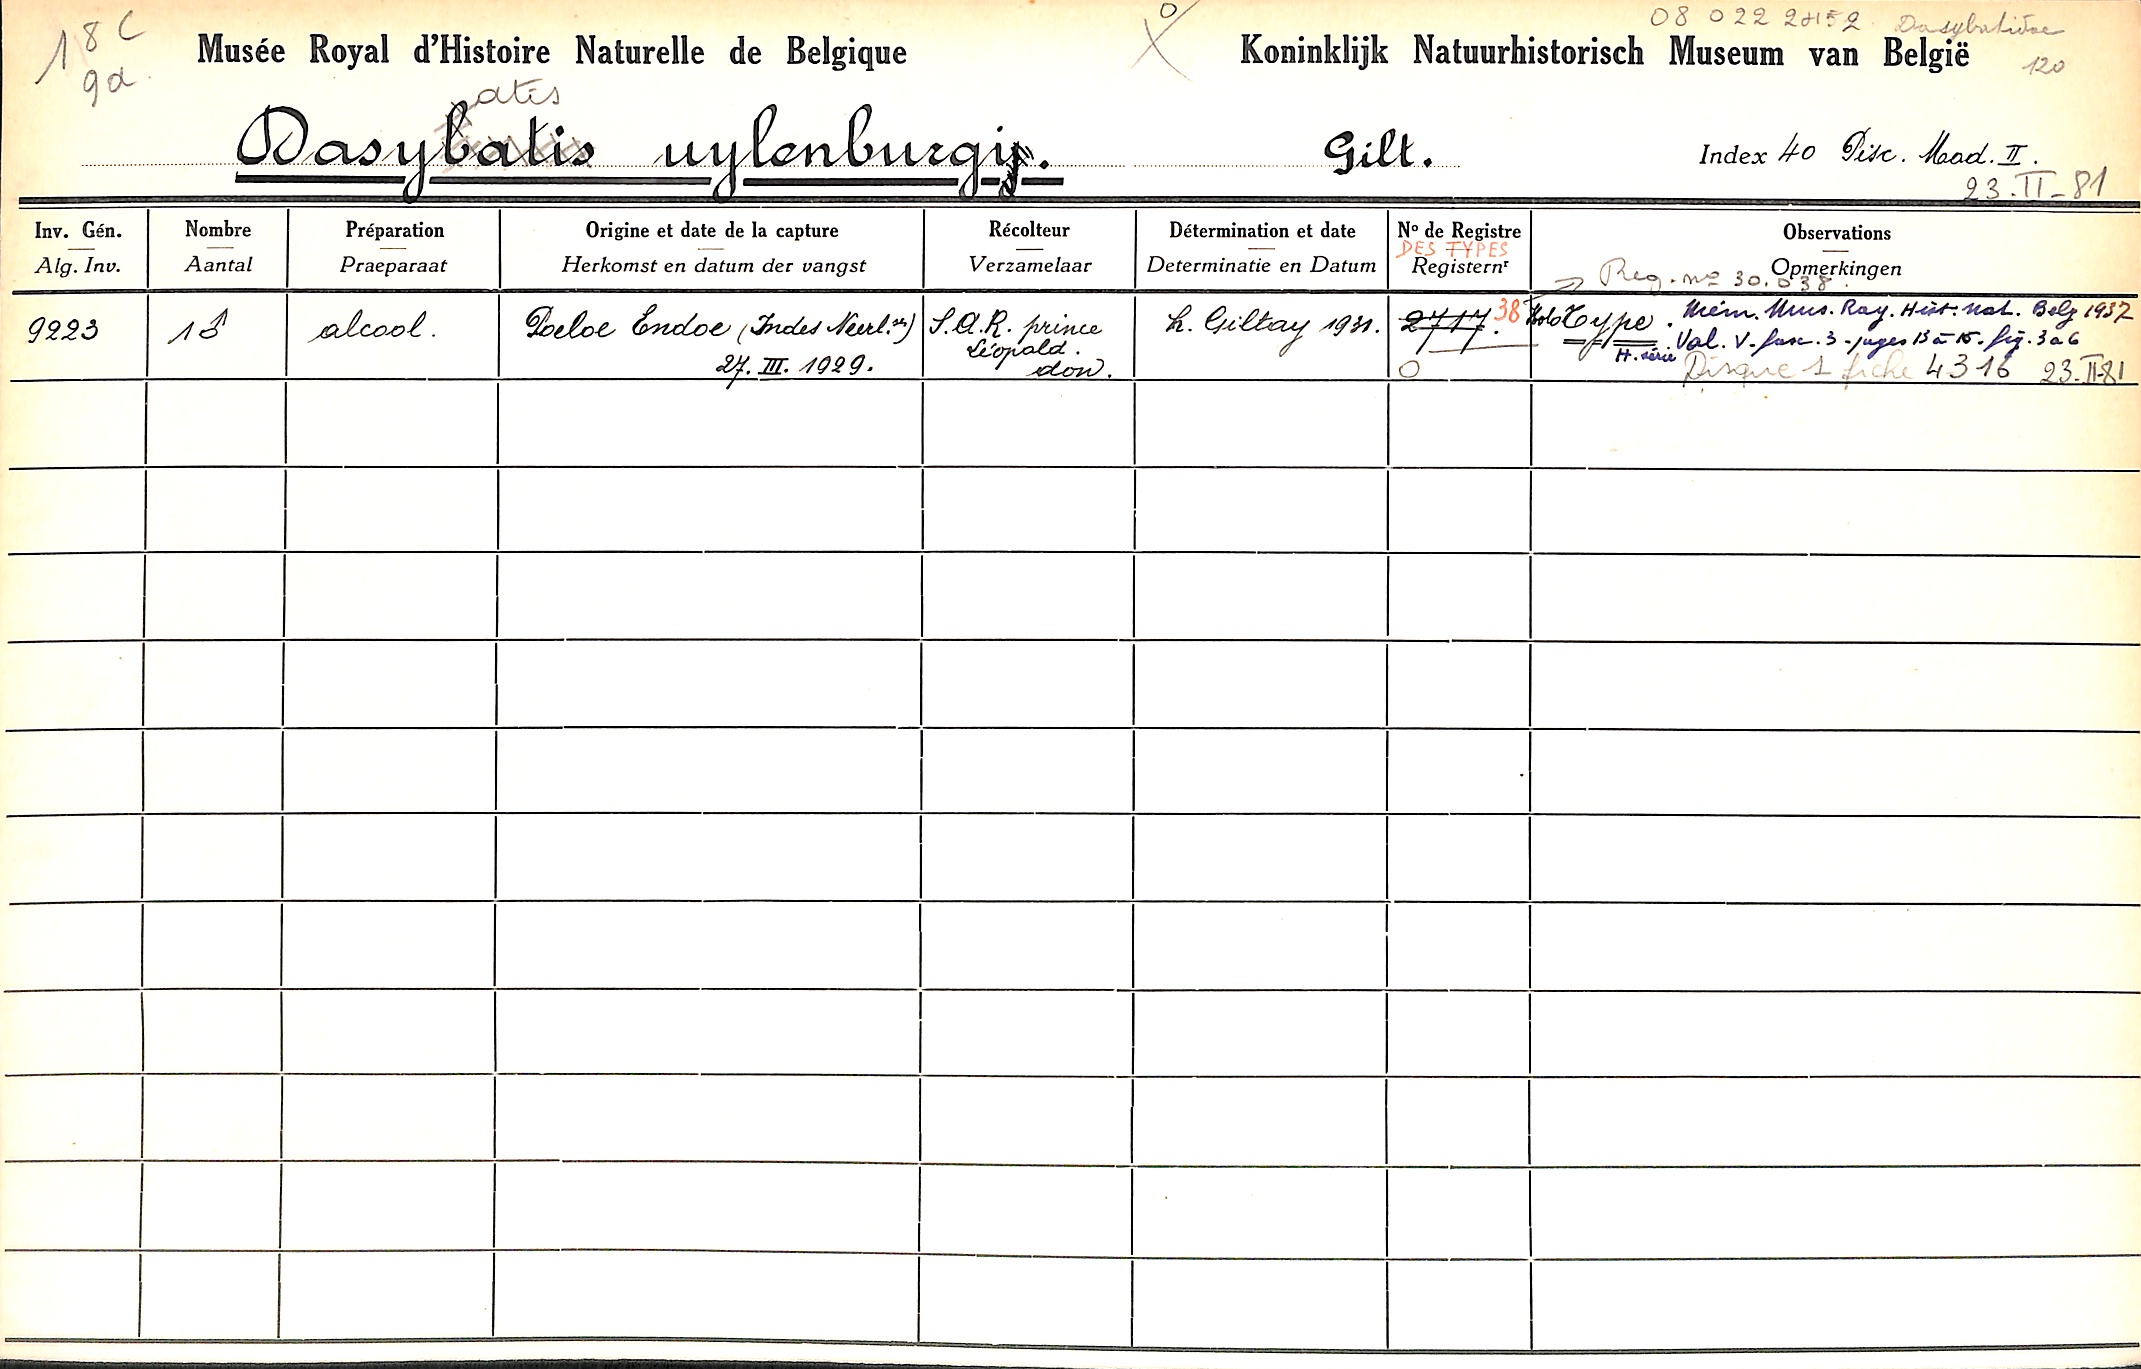 18 C
9d
08 022 2452 Dasybatidae
120
Musée Royal d'Histoire Naturelle de Belgique
Koninklijk Natuurhistorisch Museum van België
atis
Dasybatis uylenburgi. Gilt. Index 40 Pisc. Mad. II.
23.II-81
Inv. Gén. Nombre Préparation Origine et date de la capture Récolteur Détermination et date N° de Registre Observations
DES TYPES
Alg. Inv. Aantal Praeparaat Herkomst en datum der vangst Verzamelaar Determinatie en Datum Registernr Opmerkingen
→ Reg. no 30.038.
9223 1♂ alcool. Poeloe Endoe (Indes Neerl.ses) S.A.R. prince Léopald. don. L. Giltay 1931. 2717. 38 Holotype. Mém. Mus. Roy. Hist. Nat. Belg 1937
27. III. 1929. Vol. V - fasc. 3 - pages 13 à 15 - fig. 3 à 6
H. série
O Disque 1 fiche 4316 23-II-81